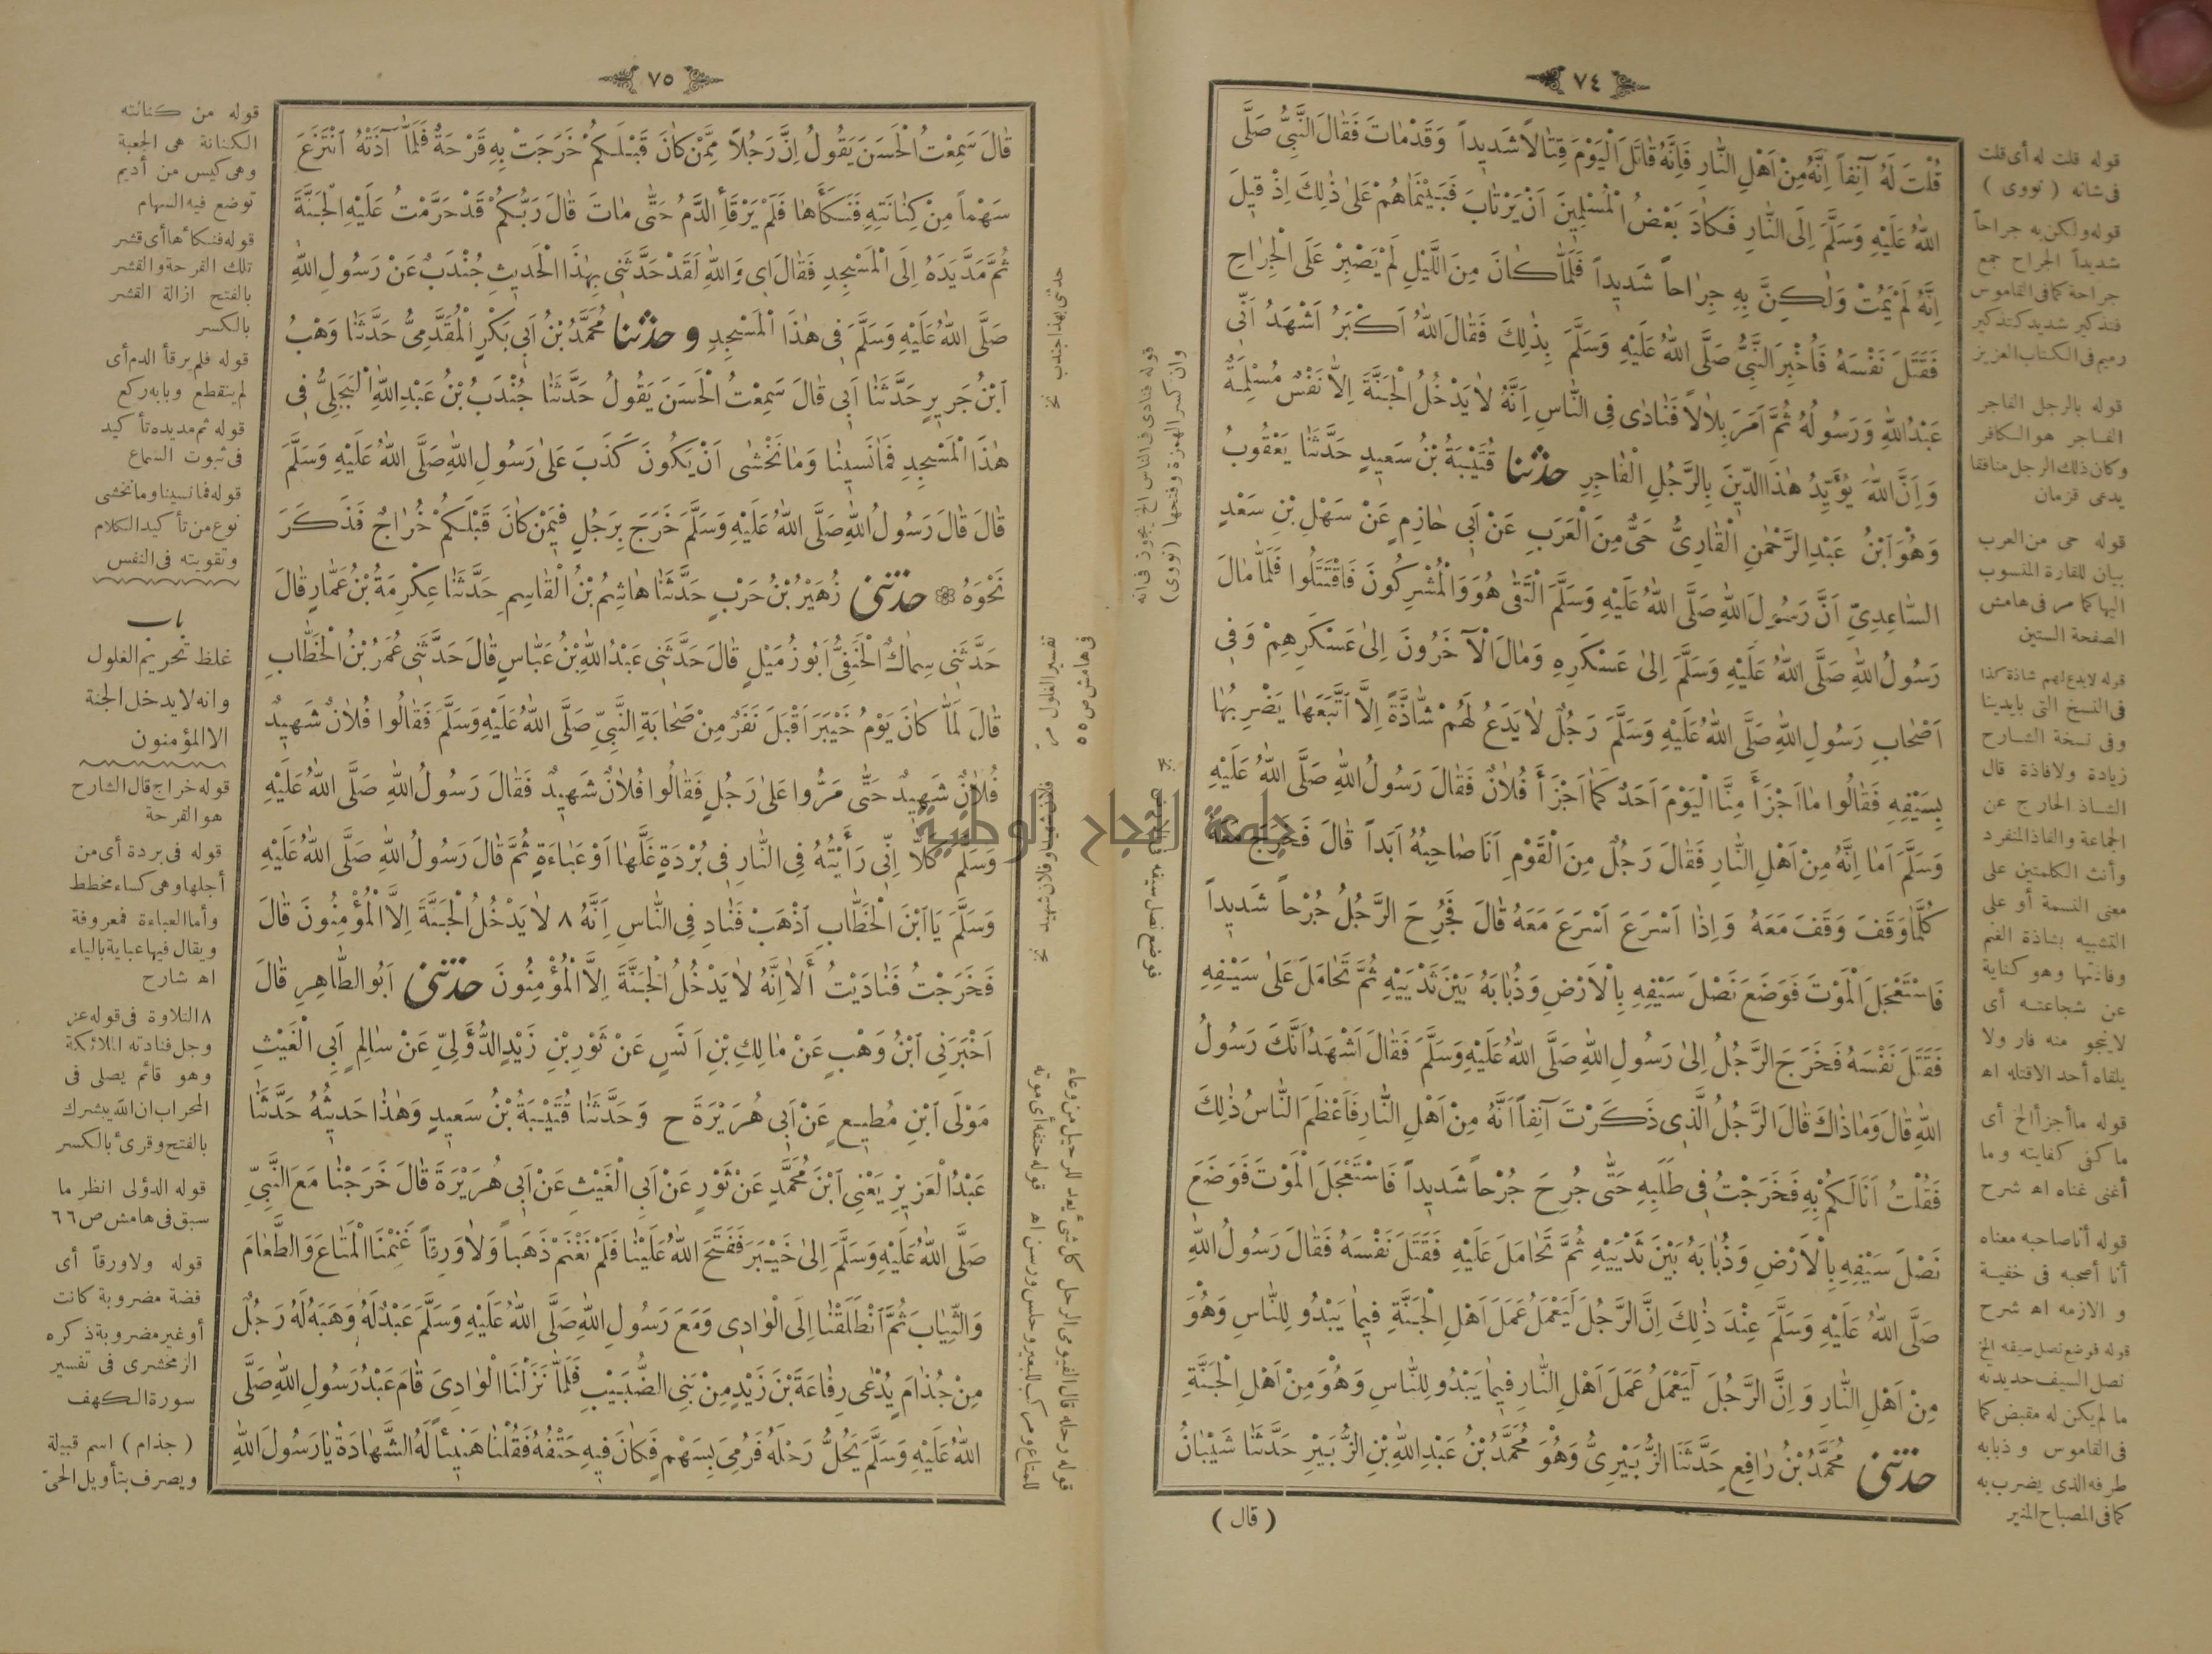 ٧٤
قُلْتَ لَهُ آنِفاً اِنَّهُ مِنْ اَهْلِ النَّارِ فَاِنَّهُ قَاتَلَ الْيَوْمَ قِتَالاً شَديداً وَقَدْ مَاتَ فَقَالَ النَّبِىُّ صَلَّى
اللّٰهُ عَلَيْهِ وَسَلَّمَ اِلَى النَّارِ فَكَادَ بَعْضُ الْمُسْلِمِينَ اَنْ يَرْتَابَ فَبَيْنَمَاهُمْ عَلىٰ ذٰلِكَ اِذْ قِيلَ
اِنَّهُ لَمْ يَمُتْ وَلٰكِنَّ بِهِ جِرَاحاً شَديداً فَلَمَّا كَانَ مِنَ اللَّيْلِ لَمْ يَصْبِرْ عَلَى الْجِرَاحِ
فَقَتَلَ نَفْسَهُ فَاُخْبِرَ النَّبِىُّ صَلَّى اللّٰهُ عَلَيْهِ وَسَلَّمَ بِذٰلِكَ فَقَالَ اللّٰهُ اَكْبَرُ اَشْهَدُ اَنِّى
عَبْدُ اللّٰهِ وَرَسُولُهُ ثُمَّ اَمَرَ بِلَالاً فَنَادٰى فِى النَّاسِ اِنَّهُ لَا يَدْخُلُ الْجَنَّةَ اِلَّا نَفْسٌ مُسْلِمَةٌ
وَاِنَّ اللّٰهَ يُؤَيِّدُ هٰذَا الدِّينَ بِالرَّجُلِ الْفَاجِرِ حدثنا قُتَيْبَةُ بْنُ سَعِيدٍ حَدَّثَنَا يَعْقُوبُ
وَهُوَ ابْنُ عَبْدِ الرَّحْمٰنِ الْقَارِىُّ حَىٌّ مِنَ الْعَرَبِ عَنْ اَبى حَازِمٍ عَنْ سَهْلِ بْنِ سَعْدٍ
السَّاعِدِىِّ اَنَّ رَسُولَ اللّٰهِ صَلَّى اللّٰهُ عَلَيْهِ وَسَلَّمَ الْتَقٰى هُوَ وَالْمُشْرِكُونَ فَاقْتَتَلُوا فَلَمَّا مَالَ
رَسُولُ اللّٰهِ صَلَّى اللّٰهُ عَلَيْهِ وَسَلَّمَ اِلىٰ عَسْكَرِهِ وَمَالَ الْآخَرُونَ اِلىٰ عَسْكَرِهِمْ وَفى
اَصْحَابِ رَسُولِ اللّٰهِ صَلَّى اللّٰهُ عَلَيْهِ وَسَلَّمَ رَجُلٌ لَا يَدَعُ لَهُمْ شَاذَّةً اِلَّا اتَّبَعَهَا يَضْرِبُهَا
بِسَيْفِهِ فَقَالُوا مَا اَجْزَأَ مِنَّا الْيَوْمَ اَحَدٌ كَمَا اَجْزَأَ فُلَانٌ فَقَالَ رَسُولُ اللّٰهِ صَلَّى اللّٰهُ عَلَيْهِ
وَسَلَّمَ اَمَا اِنَّهُ مِنْ اَهْلِ النَّارِ فَقَالَ رَجُلٌ مِنَ الْقَوْمِ اَنَا صَاحِبُهُ اَبَداً قَالَ فَخَرَجَ مَعَهُ
كُلَّمَا وَقَفَ وَقَفَ مَعَهُ وَاِذَا اَسْرَعَ اَسْرَعَ مَعَهُ قَالَ فَجُرِحَ الرَّجُلُ جُرْحاً شَديداً
فَاسْتَعْجَلَ الْمَوْتَ فَوَضَعَ نَصْلَ سَيْفِهِ بِالْاَرْضِ وَذُبَابَهُ بَيْنَ ثَدْيَيْهِ ثُمَّ تَحَامَلَ عَلىٰ سَيْفِهِ
فَقَتَلَ نَفْسَهُ فَخَرَجَ الرَّجُلُ اِلىٰ رَسُولِ اللّٰهِ صَلَّى اللّٰهُ عَلَيْهِ وَسَلَّمَ فَقَالَ اَشْهَدُ اَنَّكَ رَسُولُ
اللّٰهِ قَالَ وَمَا ذَاكَ قَالَ الرَّجُلُ الَّذى ذَكَرْتَ آنِفاً اَنَّهُ مِنْ اَهْلِ النَّارِ فَاَعْظَمَ النَّاسُ ذٰلِكَ
فَقُلْتُ اَنَا لَكُمْ بِهِ فَخَرَجْتُ فى طَلَبِهِ حَتّٰى جُرِحَ جُرْحاً شَديداً فَاسْتَعْجَلَ الْمَوْتَ فَوَضَعَ
نَصْلَ سَيْفِهِ بِالْاَرْضِ وَذُبَابَهُ بَيْنَ ثَدْيَيْهِ ثُمَّ تَحَامَلَ عَلَيْهِ فَقَتَلَ نَفْسَهُ فَقَالَ رَسُولُ اللّٰهِ
صَلَّى اللّٰهُ عَلَيْهِ وَسَلَّمَ عِنْدَ ذٰلِكَ اِنَّ الرَّجُلَ لَيَعْمَلُ عَمَلَ اَهْلِ الْجَنَّةِ فِيمَا يَبْدُو لِلنَّاسِ وَهُوَ
مِنْ اَهْلِ النَّارِ وَاِنَّ الرَّجُلَ لَيَعْمَلُ عَمَلَ اَهْلِ النَّارِ فِيمَا يَبْدُو لِلنَّاسِ وَهُوَ مِنْ اَهْلِ الْجَنَّةِ
حدثنى مُحَمَّدُ بْنُ رَافِعٍ حَدَّثَنَا الزُّبَيْرِىُّ وَهُوَ مُحَمَّدُ بْنُ عَبْدِ اللّٰهِ بْنِ الزُّبَيْرِ حَدَّثَنَا شَيْبَانُ
( قال )
قوله قلت له أى قلت
فى شانه ( نووى )
قوله ولكن به جراحاً
شديداً الجراح جمع
جراحة كما فى القاموس
فتذكير شديد كتذكير
رميم فى الكتاب العزيز
قوله بالرجل الفاجر
الفاجر هو الكافر
وكان ذلك الرجل منافقا
يدعى قزمان
قوله حى من العرب
بيان للقارة المنسوب
اليها كما مر فى هامش
الصفحة الستين
قوله لا يدع لهم شاذة كذا
فى النسخ التى بايدينا
وفى نسخة الشارح
زيادة ولا فاذة قال
الشاذ الخارج عن
الجماعة والفاذ المنفرد
وأنث الكلمتين على
معنى النسمة أو على
التشبيه بشاذة الغنم
وفاذتها وهو كناية
عن شجاعته أى
لا ينجو منه فار ولا
يلقاه أحد الا قتله اه
قوله ما أجزأ الخ أى
ما كفى كفايته وما
أغنى غناه اه شرح
قوله أنا صاحبه معناه
أنا أصحبه فى خفية
و الازمه اه شرح
قوله فوضع نصل سيفه الخ
نصل السيف حديدته
ما لم يكن له مقبض كما
فى القاموس وذبابه
طرفه الذى يضرب به
كما فى المصباح المنير
قوله فنادى فى الناس الخ يجوز فى انه
وان كسر الهمزة وفتحها (نووى)
فوضع نصل سيفه
٧٥
قَالَ سَمِعْتُ الْحَسَنَ يَقُولُ اِنَّ رَجُلاً مِمَّنْ كَانَ قَبْلَكُمْ خَرَجَتْ بِهِ قَرْحَةٌ فَلَمَّا آذَتْهُ انْتَزَعَ
سَهْماً مِنْ كِنَانَتِهِ فَنَكَأَهَا فَلَمْ يَرْقَأِ الدَّمُ حَتّٰى مَاتَ قَالَ رَبُّكُمْ قَدْ حَرَّمْتُ عَلَيْهِ الْجَنَّةَ
ثُمَّ مَدَّ يَدَهُ اِلَى الْمَسْجِدِ فَقَالَ اى وَاللّٰهِ لَقَدْ حَدَّثَنى بِهٰذَا الْحَديثِ جُنْدَبٌ عَنْ رَسُولِ اللّٰهِ
صَلَّى اللّٰهُ عَلَيْهِ وَسَلَّمَ فى هٰذَا الْمَسْجِدِ و حدثنا مُحَمَّدُ بْنُ اَبى بَكْرٍ الْمُقَدَّمِىُّ حَدَّثَنَا وَهْبُ
ابْنُ جَرِيرٍ حَدَّثَنَا اَبى قَالَ سَمِعْتُ الْحَسَنَ يَقُولُ حَدَّثَنَا جُنْدَبُ بْنُ عَبْدِ اللّٰهِ الْبَجَلِىُّ فى
هٰذَا الْمَسْجِدِ فَمَا نَسِينَا وَمَا نَخْشٰى اَنْ يَكُونَ كَذَبَ عَلىٰ رَسُولِ اللّٰهِ صَلَّى اللّٰهُ عَلَيْهِ وَسَلَّمَ
قَالَ قَالَ رَسُولُ اللّٰهِ صَلَّى اللّٰهُ عَلَيْهِ وَسَلَّمَ خَرَجَ بِرَجُلٍ فيمَنْ كَانَ قَبْلَكُمْ خُرَاجٌ فَذَكَرَ
نَحْوَهُ حدثنى زُهَيْرُ بْنُ حَرْبٍ حَدَّثَنَا هَاشِمُ بْنُ الْقَاسِمِ حَدَّثَنَا عِكْرِمَةُ بْنُ عَمَّارٍ قَالَ
حَدَّثَنى سِمَاكٌ الْحَنَفِىُّ اَبُو زُمَيْلٍ قَالَ حَدَّثَنى عَبْدُ اللّٰهِ بْنُ عَبَّاسٍ قَالَ حَدَّثَنى عُمَرُ بْنُ الْخَطَّابِ
قَالَ لَمَّا كَانَ يَوْمُ خَيْبَرَ اَقْبَلَ نَفَرٌ مِنْ صَحَابَةِ النَّبِىِّ صَلَّى اللّٰهُ عَلَيْهِ وَسَلَّمَ فَقَالُوا فُلَانٌ شَهِيدٌ
فُلَانٌ شَهِيدٌ حَتّٰى مَرُّوا عَلىٰ رَجُلٍ فَقَالُوا فُلَانٌ شَهِيدٌ فَقَالَ رَسُولُ اللّٰهِ صَلَّى اللّٰهُ عَلَيْهِ
وَسَلَّمَ كَلَّا اِنِّى رَأَيْتُهُ فِى النَّارِ فى بُرْدَةٍ غَلَّهَا اَوْ عَبَاءَةٍ ثُمَّ قَالَ رَسُولُ اللّٰهِ صَلَّى اللّٰهُ عَلَيْهِ
وَسَلَّمَ يَا ابْنَ الْخَطَّابِ اذْهَبْ فَنَادِ فِى النَّاسِ اِنَّهُ ٨ لَا يَدْخُلُ الْجَنَّةَ اِلَّا الْمُؤْمِنُونَ قَالَ
فَخَرَجْتُ فَنَادَيْتُ أَلَا اِنَّهُ لَا يَدْخُلُ الْجَنَّةَ اِلَّا الْمُؤْمِنُونَ حدثنى اَبُو الطَّاهِرِ قَالَ
اَخْبَرَنِى ابْنُ وَهْبٍ عَنْ مَالِكِ بْنِ اَنَسٍ عَنْ ثَوْرِ بْنِ زَيْدٍ الدُّؤَلِىِّ عَنْ سَالِمٍ اَبِى الْغَيْثِ
مَوْلَى ابْنِ مُطِيعٍ عَنْ اَبى هُرَيْرَةَ ح وَحَدَّثَنَا قُتَيْبَةُ بْنُ سَعِيدٍ وَهٰذَا حَديثُهُ حَدَّثَنَا
عَبْدُ الْعَزيزِ يَعْنِى ابْنَ مُحَمَّدٍ عَنْ ثَوْرٍ عَنْ اَبِى الْغَيْثِ عَنْ اَبى هُرَيْرَةَ قَالَ خَرَجْنَا مَعَ النَّبِىِّ
صَلَّى اللّٰهُ عَلَيْهِ وَسَلَّمَ اِلىٰ خَيْبَرَ فَفَتَحَ اللّٰهُ عَلَيْنَا فَلَمْ نَغْنَمْ ذَهَباً وَلَا وَرِقاً غَنِمْنَا الْمَتَاعَ وَالطَّعَامَ
وَالثِّيَابَ ثُمَّ انْطَلَقْنَا اِلَى الْوَادِى وَمَعَ رَسُولِ اللّٰهِ صَلَّى اللّٰهُ عَلَيْهِ وَسَلَّمَ عَبْدٌ لَهُ وَهَبَهُ لَهُ رَجُلٌ
مِنْ جُذَامَ يُدْعٰى رِفَاعَةَ بْنَ زَيْدٍ مِنْ بَنِى الضُّبَيْبِ فَلَمَّا نَزَلْنَا الْوَادِىَ قَامَ عَبْدُ رَسُولِ اللّٰهِ صَلَّى
اللّٰهُ عَلَيْهِ وَسَلَّمَ يَحُلُّ رَحْلَهُ فَرُمِىَ بِسَهْمٍ فَكَانَ فيهِ حَتْفُهُ فَقُلْنَا هَنيئاً لَهُ الشَّهَادَةُ يَا رَسُولَ اللّٰهِ
قوله من كنانته
الكنانة هى الجعبة
وهى كيس من أديم
توضع فيه السهام
قوله فنكأها أى قشر
تلك القرحة والقشر
بالفتح ازالة القشر
بالكسر
قوله فلم يرقأ الدم أى
لم ينقطع وبابه ركع
قوله ثم مد يده تأكيد
فى ثبوت السماع
قوله فما نسينا وما نخشى
نوع من تأكيد الكلام
وتقويته فى النفس
باب
غلظ تحريم الغلول
وانه لا يدخل الجنة
الا المؤمنون
قوله خراج قال الشارح
هو القرحة
قوله فى بردة أى من
أجلها وهى كساء مخطط
وأما العباءة فمعروفة
ويقال فيها عباية بالياء
اه شارح
٨ التلاوة فى قوله عز
وجل فنادته الملائكة
وهو قائم يصلى فى
المحراب ان الله يبشرك
بالفتح وقرئ بالكسر
قوله الدؤلى انظر ما
سبق فى هامش ص ٦٦
قوله ولا ورقاً أى
فضة مضروبة كانت
أو غير مضروبة ذكره
الزمخشرى فى تفسير
سورة الكهف
( جذام ) اسم قبيلة
ويصرف بتأويل الحىّ
حدثنى بهذا جندب نخ
تفسير الغلول مر
فى هامش ص ٥٥
قوله رحله قال الفيومى الرحل كل شئ يعد للرحيل من وعاء
للمتاع ومركب للبعير وحلس ورسن اه قوله حتفه أى موته
جامعة النجاح الوطنية